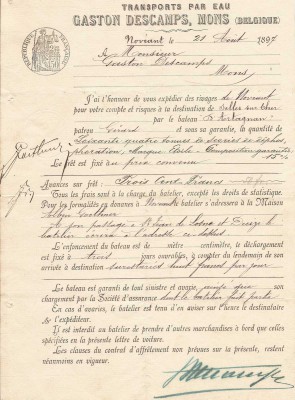 TRANSPORTS PAR EAU
GASTON DESCAMPS, MONS (BELGIQUE)
RÉPUBLIQUE FRANÇAISE
Noviant le 21 Août 189
A Monsieur
Gaston Descamps
Mons
J'ai l'honneur de vous expédier des rivages de Noviant
pour votre compte et risques à la destination de Selles sur Cher
par le bateau D'Artagnan
patron et sous sa garantie, la quantité de
soixante quatre tonnes de scories de
Marque Composition garantie
15 %
Le fret est fixé au prix convenu
Avances sur fret: Trois Cent Francs
Tous les frais sont à la charge du batelier, excepté les droits de statistique.
Pour les formalités en douanes à le batelier s'adressera à la Maison
Au passage à et le
batelier à l'adresse
L'enfoncement du bateau est de mètre centimètre, le déchargement
est fixé à trois jours ouvrables, à compter du lendemain de son
arrivée à destination surestaries huit francs par jour
Le bateau est garanti de tout sinistre et avarie, ainsi que son
chargement par la Société d'assurance dont le batelier fait partie
En cas d'avaries, le batelier est tenu d'en aviser sur l'heure le destinataire
& l'expéditeur.
Il est interdit au batelier de prendre d'autres marchandises à bord que celles
spécifiées en la présente lettre de voiture.
Les clauses du contrat d'affrètement non prévues sur la présente, restent
néanmoins en vigueur.